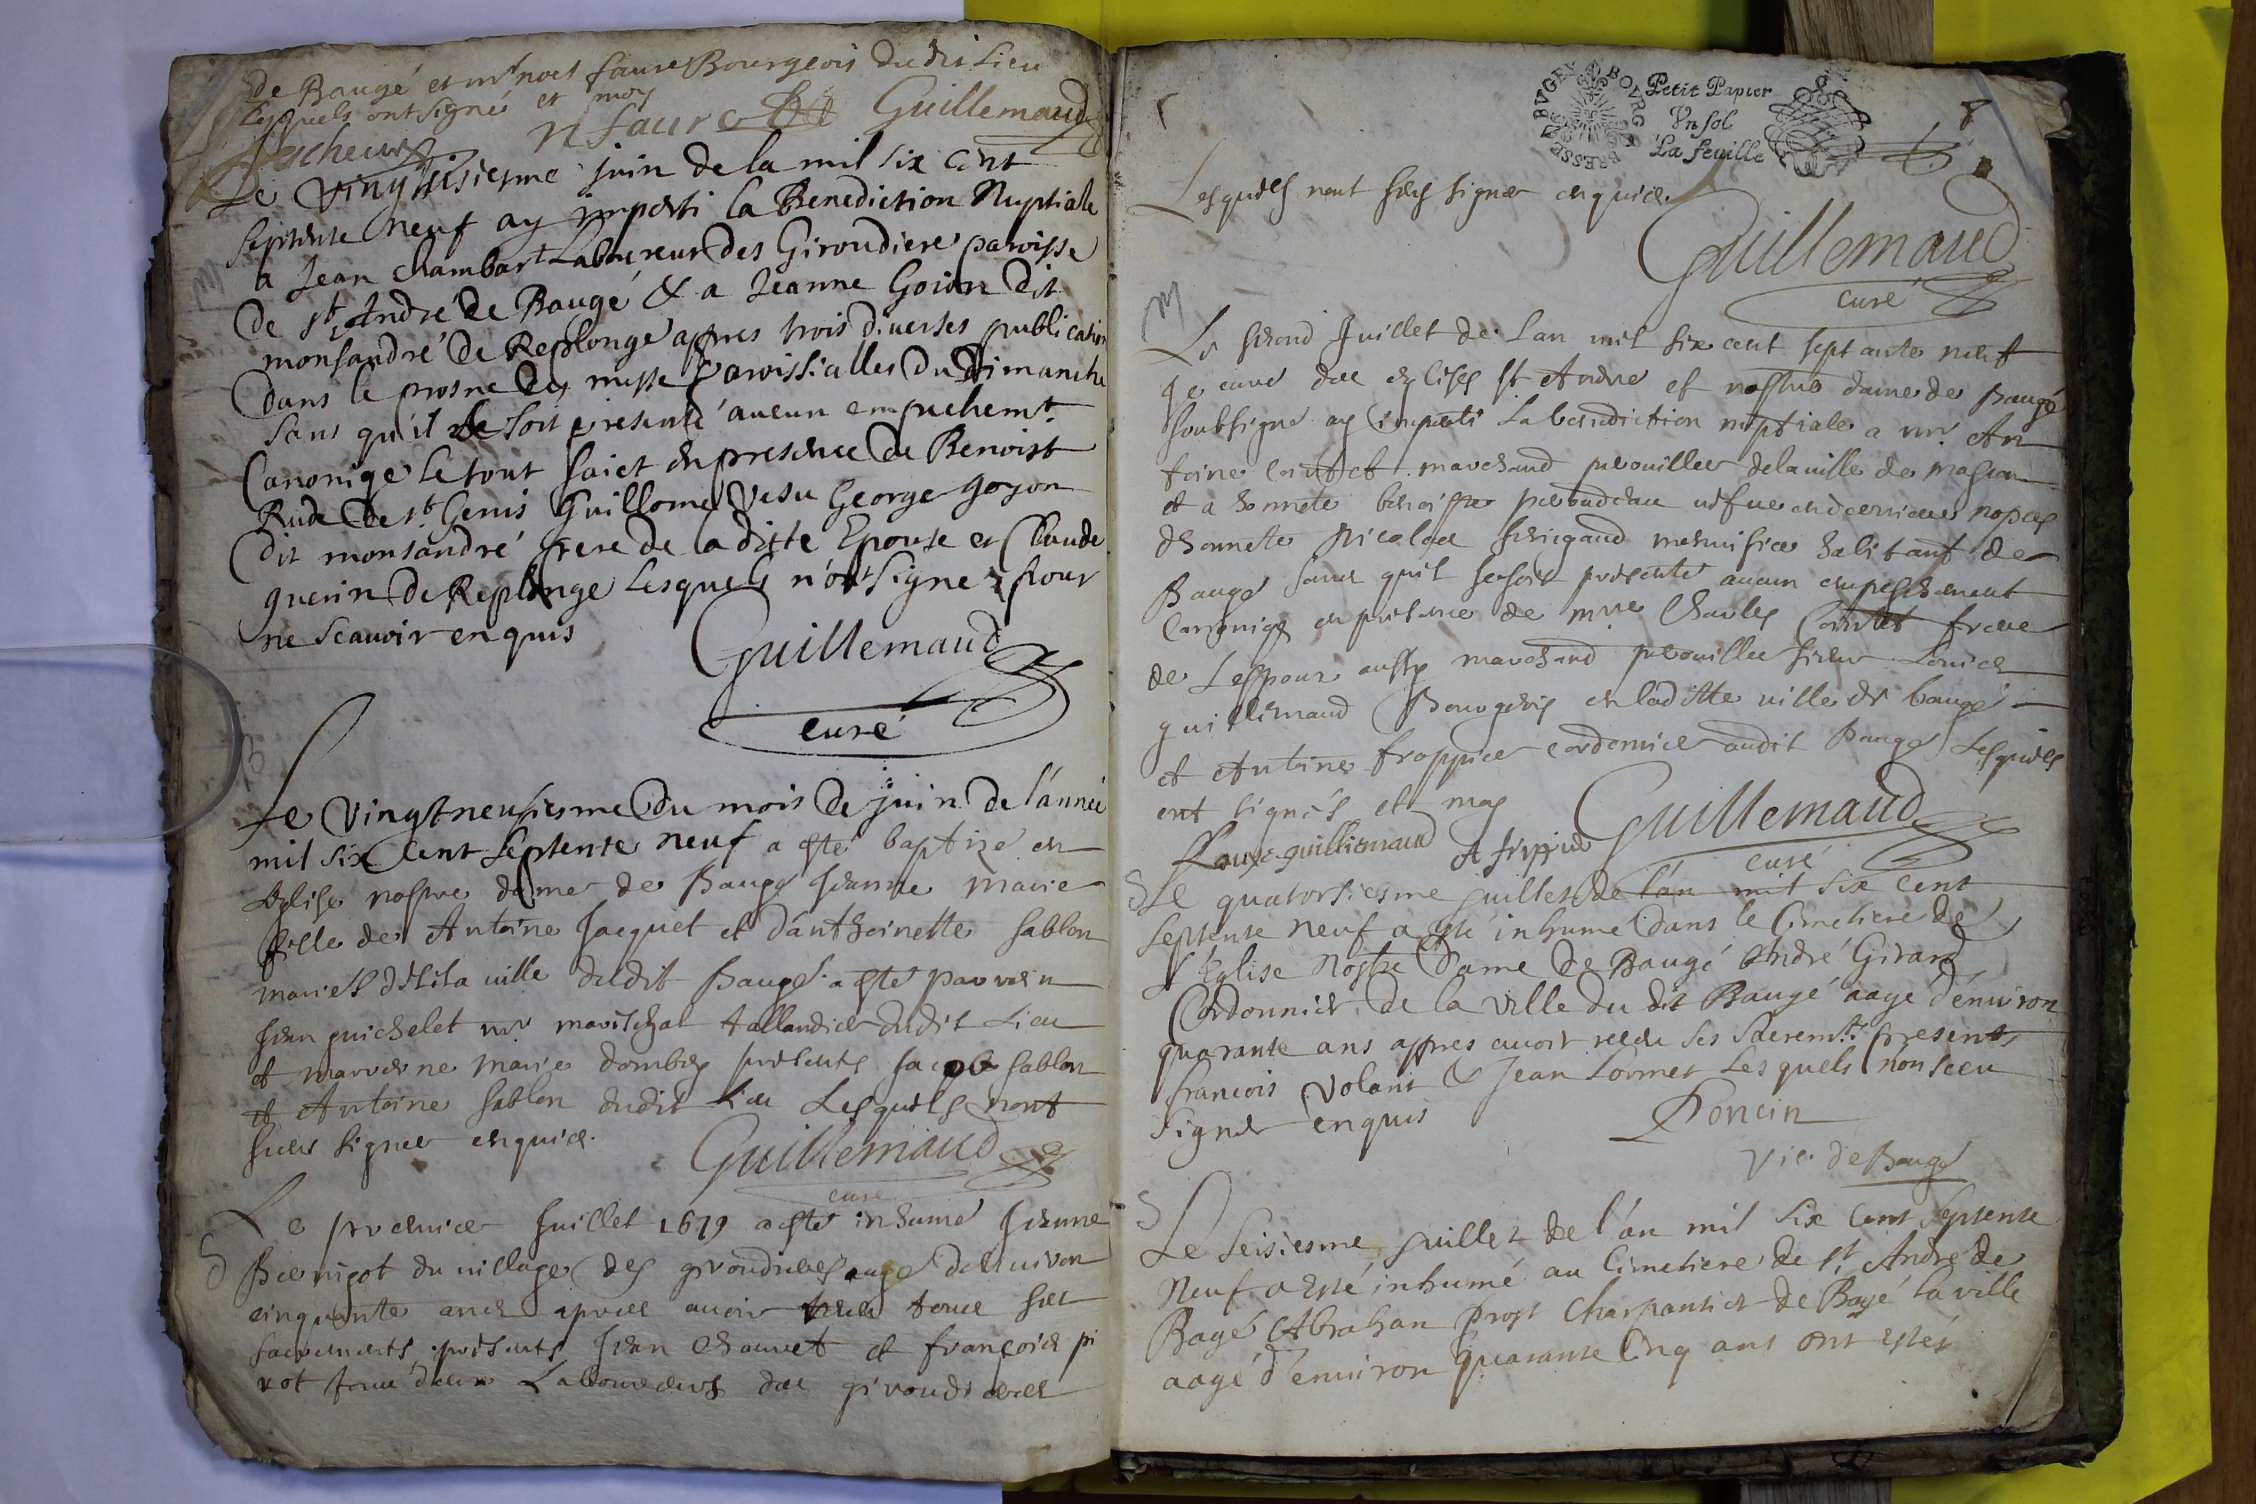 de Baugé et mr noel faure Bourgeois du dit Lieu
Lesquels ont signé et moy
n faure Guillemaud
Le vingtsisiesme juin de la mil six cent
septente neuf ay imparti la Benediction Nuptiale
a Jean Chambart Laboureur des Giroudiere paroisse
De st André de Baugé & a Jeanne Goion dit
monsandré de Replonge appres trois diuerses publication
Dans le prosne des messe Paroissialles du dimanche
sans qu'il se soit presenté aucun empechemt
Canonige Le tout faict en presence de Benoist
Rude de st Genis Guillome Vesu George goyon
dit monsandré frere de la dite Epouse et Claude
guerin de Replonge Lesquels n'ont signe pour
ne scauoir enquis
Guillemaud
curé
Le vingtneufiesme du mois de juin de l'année
mil six Cent septente neuf a esté baptizé en
Leglise nostre dame de Baugé Jeanne marie
fille de Antoine Jacquet et d'anthoinette sablon
mariés de la ville dudit Baugé a esté parrein
Jean guichelet mr marischal tallandier dudit Lieu
et marreine marie dombey presents Jacob sablon
et Antoine sablon dudit Lieu Lesquels nont
sceu signer enquis.
Guillemaud
curé
Le premier Juillet 1679 a esté inhumé Jeanne
Bernigot du village des giroudieres aagé denuiron
cinquante ans apres auoir receu tous ses
sacrements, presents Jean Chauuet et françois pi
rot tous deux Laboureurs des giroudieres
BVGEY BOVRG BRESSE
Petit Papier
Vn sol
La feuille
8
Lesquels nont sceu signer enquis.
Guillemaud
curé
M
Le second Juillet de Lan mil six cent septante neuf
Je curé des eglises st Andre et nostre dame de Baugé
soubsigné ay imparti La benediction nuptiale a mr An
toine Cortet marchand perouillier de la ville de mascon
et a honnete benoiste perraudeau vefue en dernieres nopces
dhonnete Nicolas serigaud menuisier habitant de
Baugé sans quil se soit presenté aucun empeschement
Canonige en presence de mre Charles Cortet frere
de Lespoux aussy marchand perouillier sieur Louis
guillemaud Bourgeois en laditte ville de baugé
et Antoine frappier cordonnier audit Baugé Lesquels
ont signés et moy
Louys guilliemaud A frippier Guillemaud
curé
Le quatorsiesme juillet de l'an mil six cent
septente neuf a esté inhumé dans le Cimetiere de
l'Eglise Nostre Dame de Baugé André Girard
Cordonnier de la ville du dit Baugé aagé d'enuiron
quarante ans appres auoir receu ses sacremts presents
francois Volant & Jean Lormet Lesquels non sceu
signer enquis
Poncin
vic. de Baugé
Le seisiesme juillet de l'an mil six Cent septente
Neuf a esté inhumé au Cimetiere de st André de
Bagé Abrahan Prost Charpantier de Bagé la ville
aagé d'enuiron quarante Cinq ans ont estés